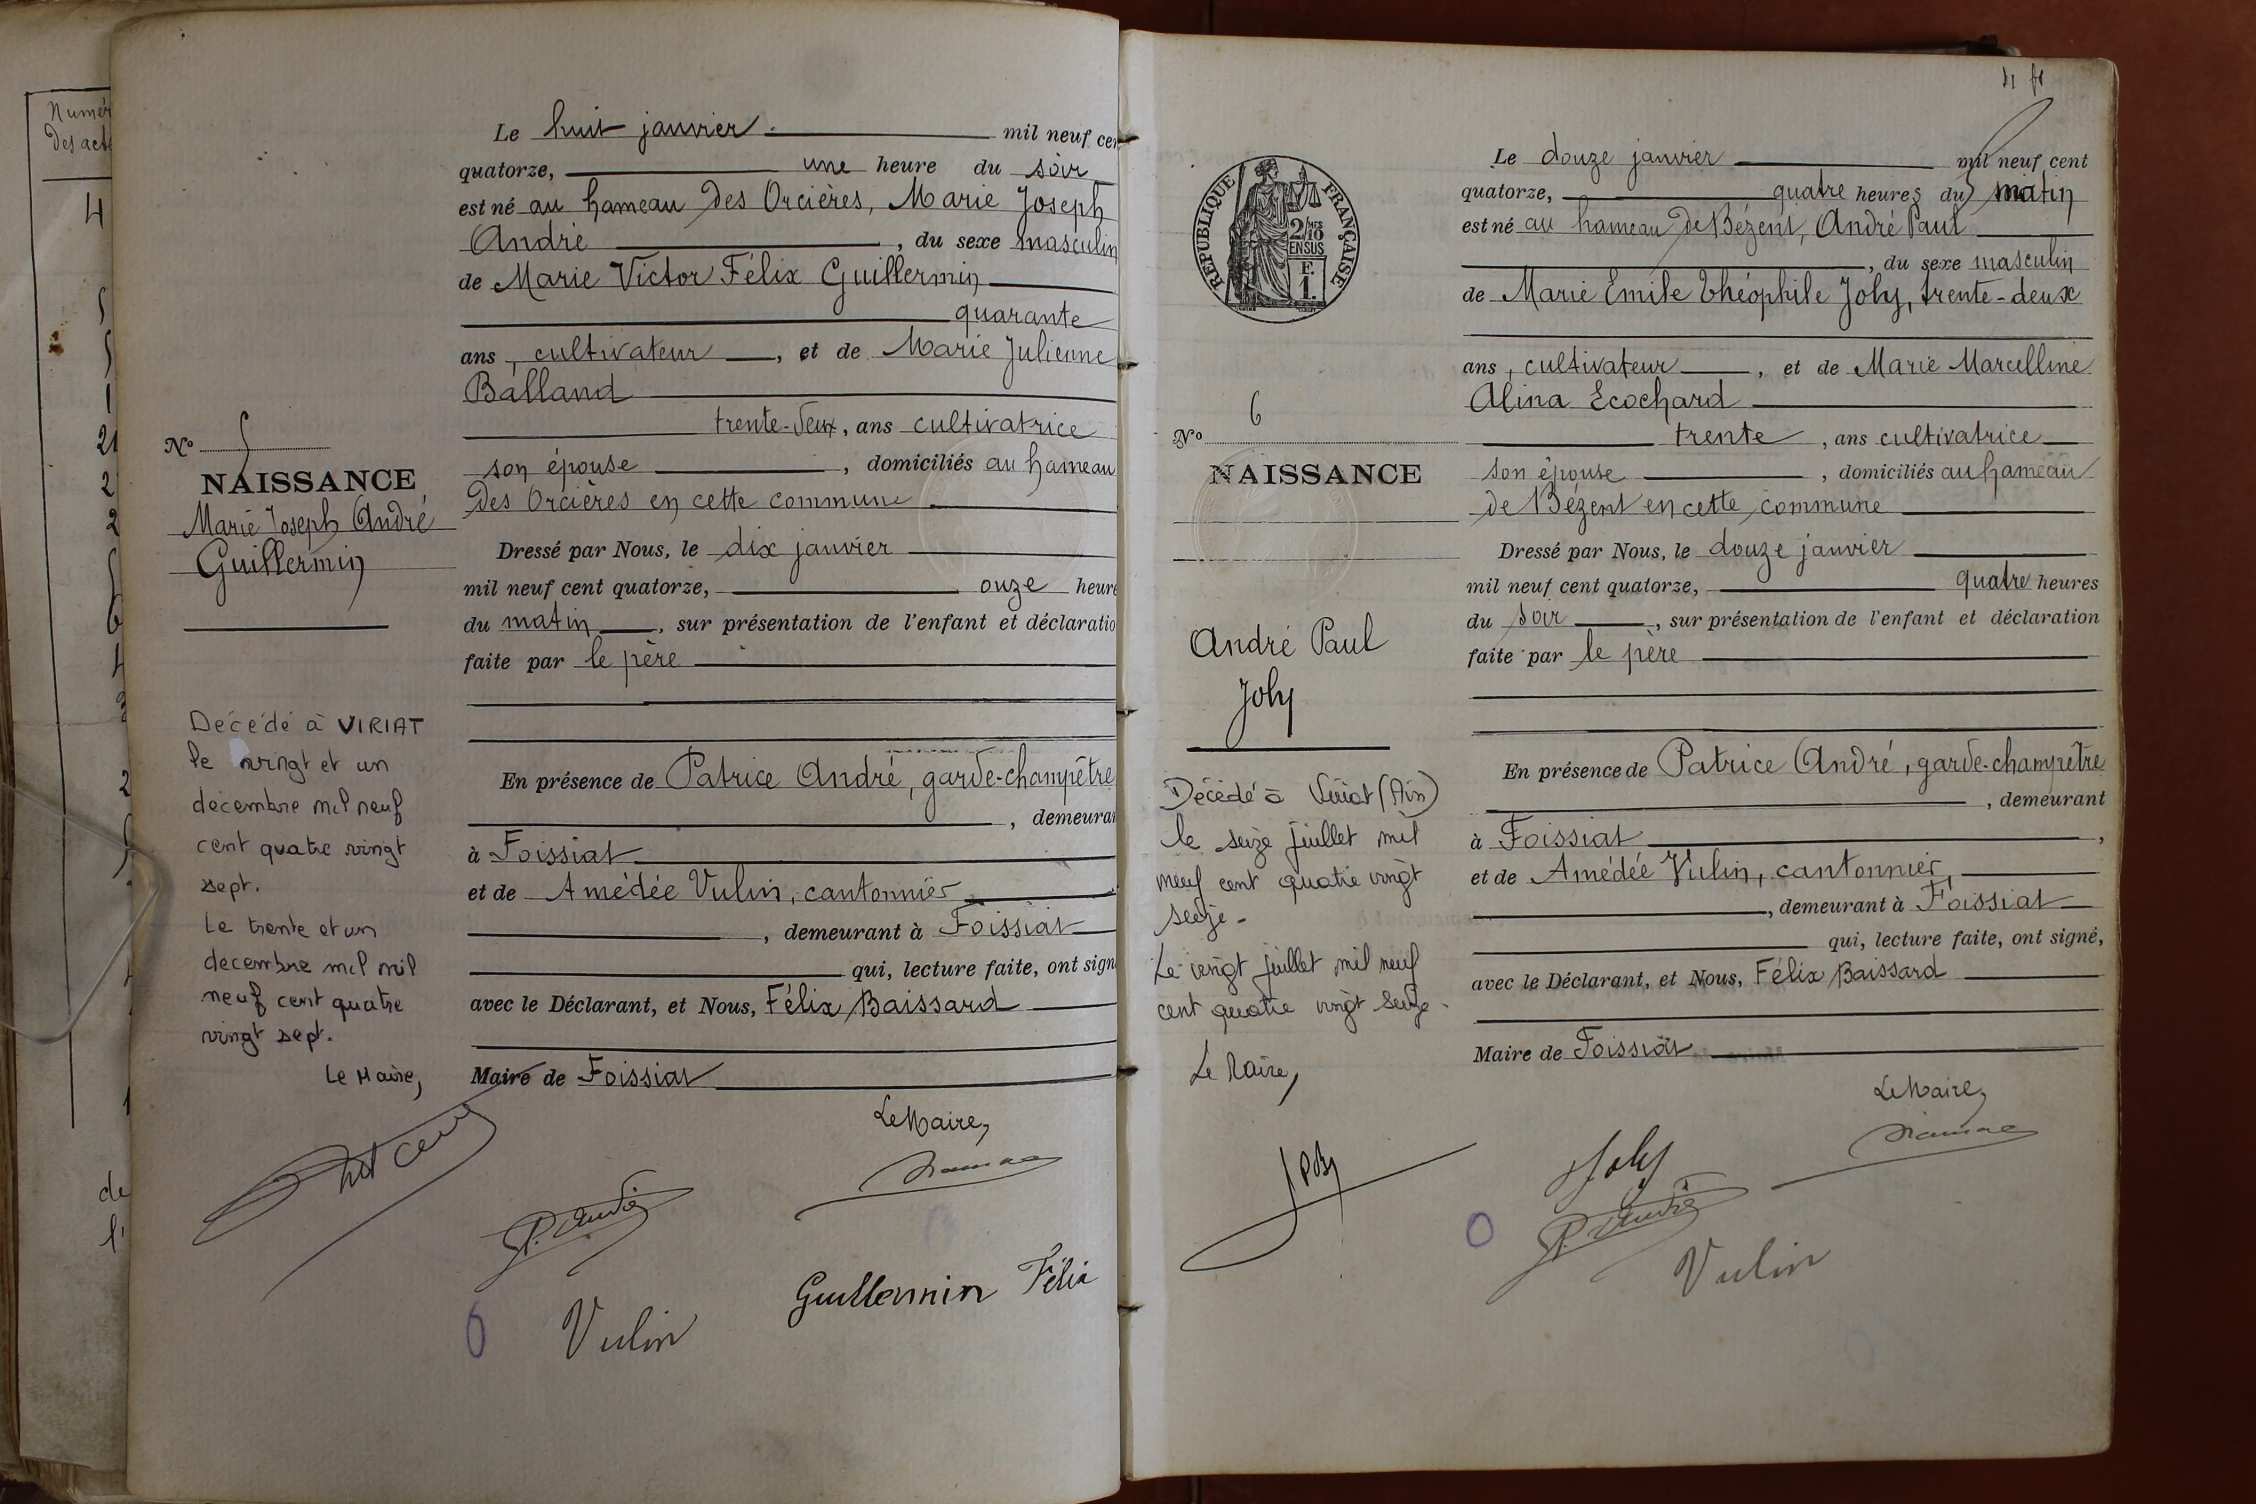 Numér
Des acte
4
5
5
1
21
2
2
5
6
4
3
2
5
4
1
de
l'
Le huit janvier mil neuf cen
quatorze, une heure du soir
est né au hameau des Orcières, Marie Joseph
André , du sexe masculin
de Marie Victor Félix Guillermin
quarante
ans, cultivateur , et de Marie Julienne
Balland
trente-deux, ans cultivatrice
son épouse , domiciliés au hameau
des Orcières en cette commune
Dressé par Nous, le dix janvier
mil neuf cent quatorze, onze heure
du matin , sur présentation de l'enfant et déclaratio
faite par le père
En présence de Patrice André, garde-champêtre
, demeuran
à Foissiat
et de Amédée Vulin, cantonnier
, demeurant à Foissiat
qui, lecture faite, ont sign
avec le Déclarant, et Nous, Félix Baissard
Maire de Foissiat
Le Maire,
P. André
Guillermin Félix
Vulin
N° 5
NAISSANCE
Marie Joseph André
Guillermin
Décédé à VIRIAT
le vingt et un
décembre mil neuf
cent quatre vingt
sept.
Le trente et un
decembre mil mil
neuf cent quatre
vingt sept.
Le Maire,
Le douze janvier mil neuf cent
quatorze, quatre heures du matin
est né au hameau de Bézent, André Paul
, du sexe masculin
de Marie Emile Théophile Joly, trente-deux
ans, cultivateur , et de Marie Marcelline
Alina Ecochard
trente , ans cultivatrice
son épouse , domiciliés au hameau
de Bézent en cette commune
Dressé par Nous, le douze janvier
mil neuf cent quatorze, quatre heures
du soir , sur présentation de l'enfant et déclaration
faite par le père
En présence de Patrice André, garde-champêtre
, demeurant
à Foissiat ,
et de Amédée Vulin, cantonnier,
, demeurant à Foissiat
qui, lecture faite, ont signé,
avec le Déclarant, et Nous, Félix Baissard
Maire de Foissiat
Le Maire,
Joly
P. André
Vulin
RÉPUBLIQUE FRANÇAISE
2/10 MES
EN SUS
F.
1.
N° 6
NAISSANCE
André Paul
Joly
Décédé à Viriat (Ain)
le seize juillet mil
neuf cent quatre vingt
seize -
Le vingt juillet mil neuf
cent quatre vingt seize -
Le Maire,